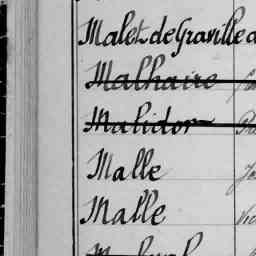 Malet de Graville
Malhaire
Malidor
Malle
Malle